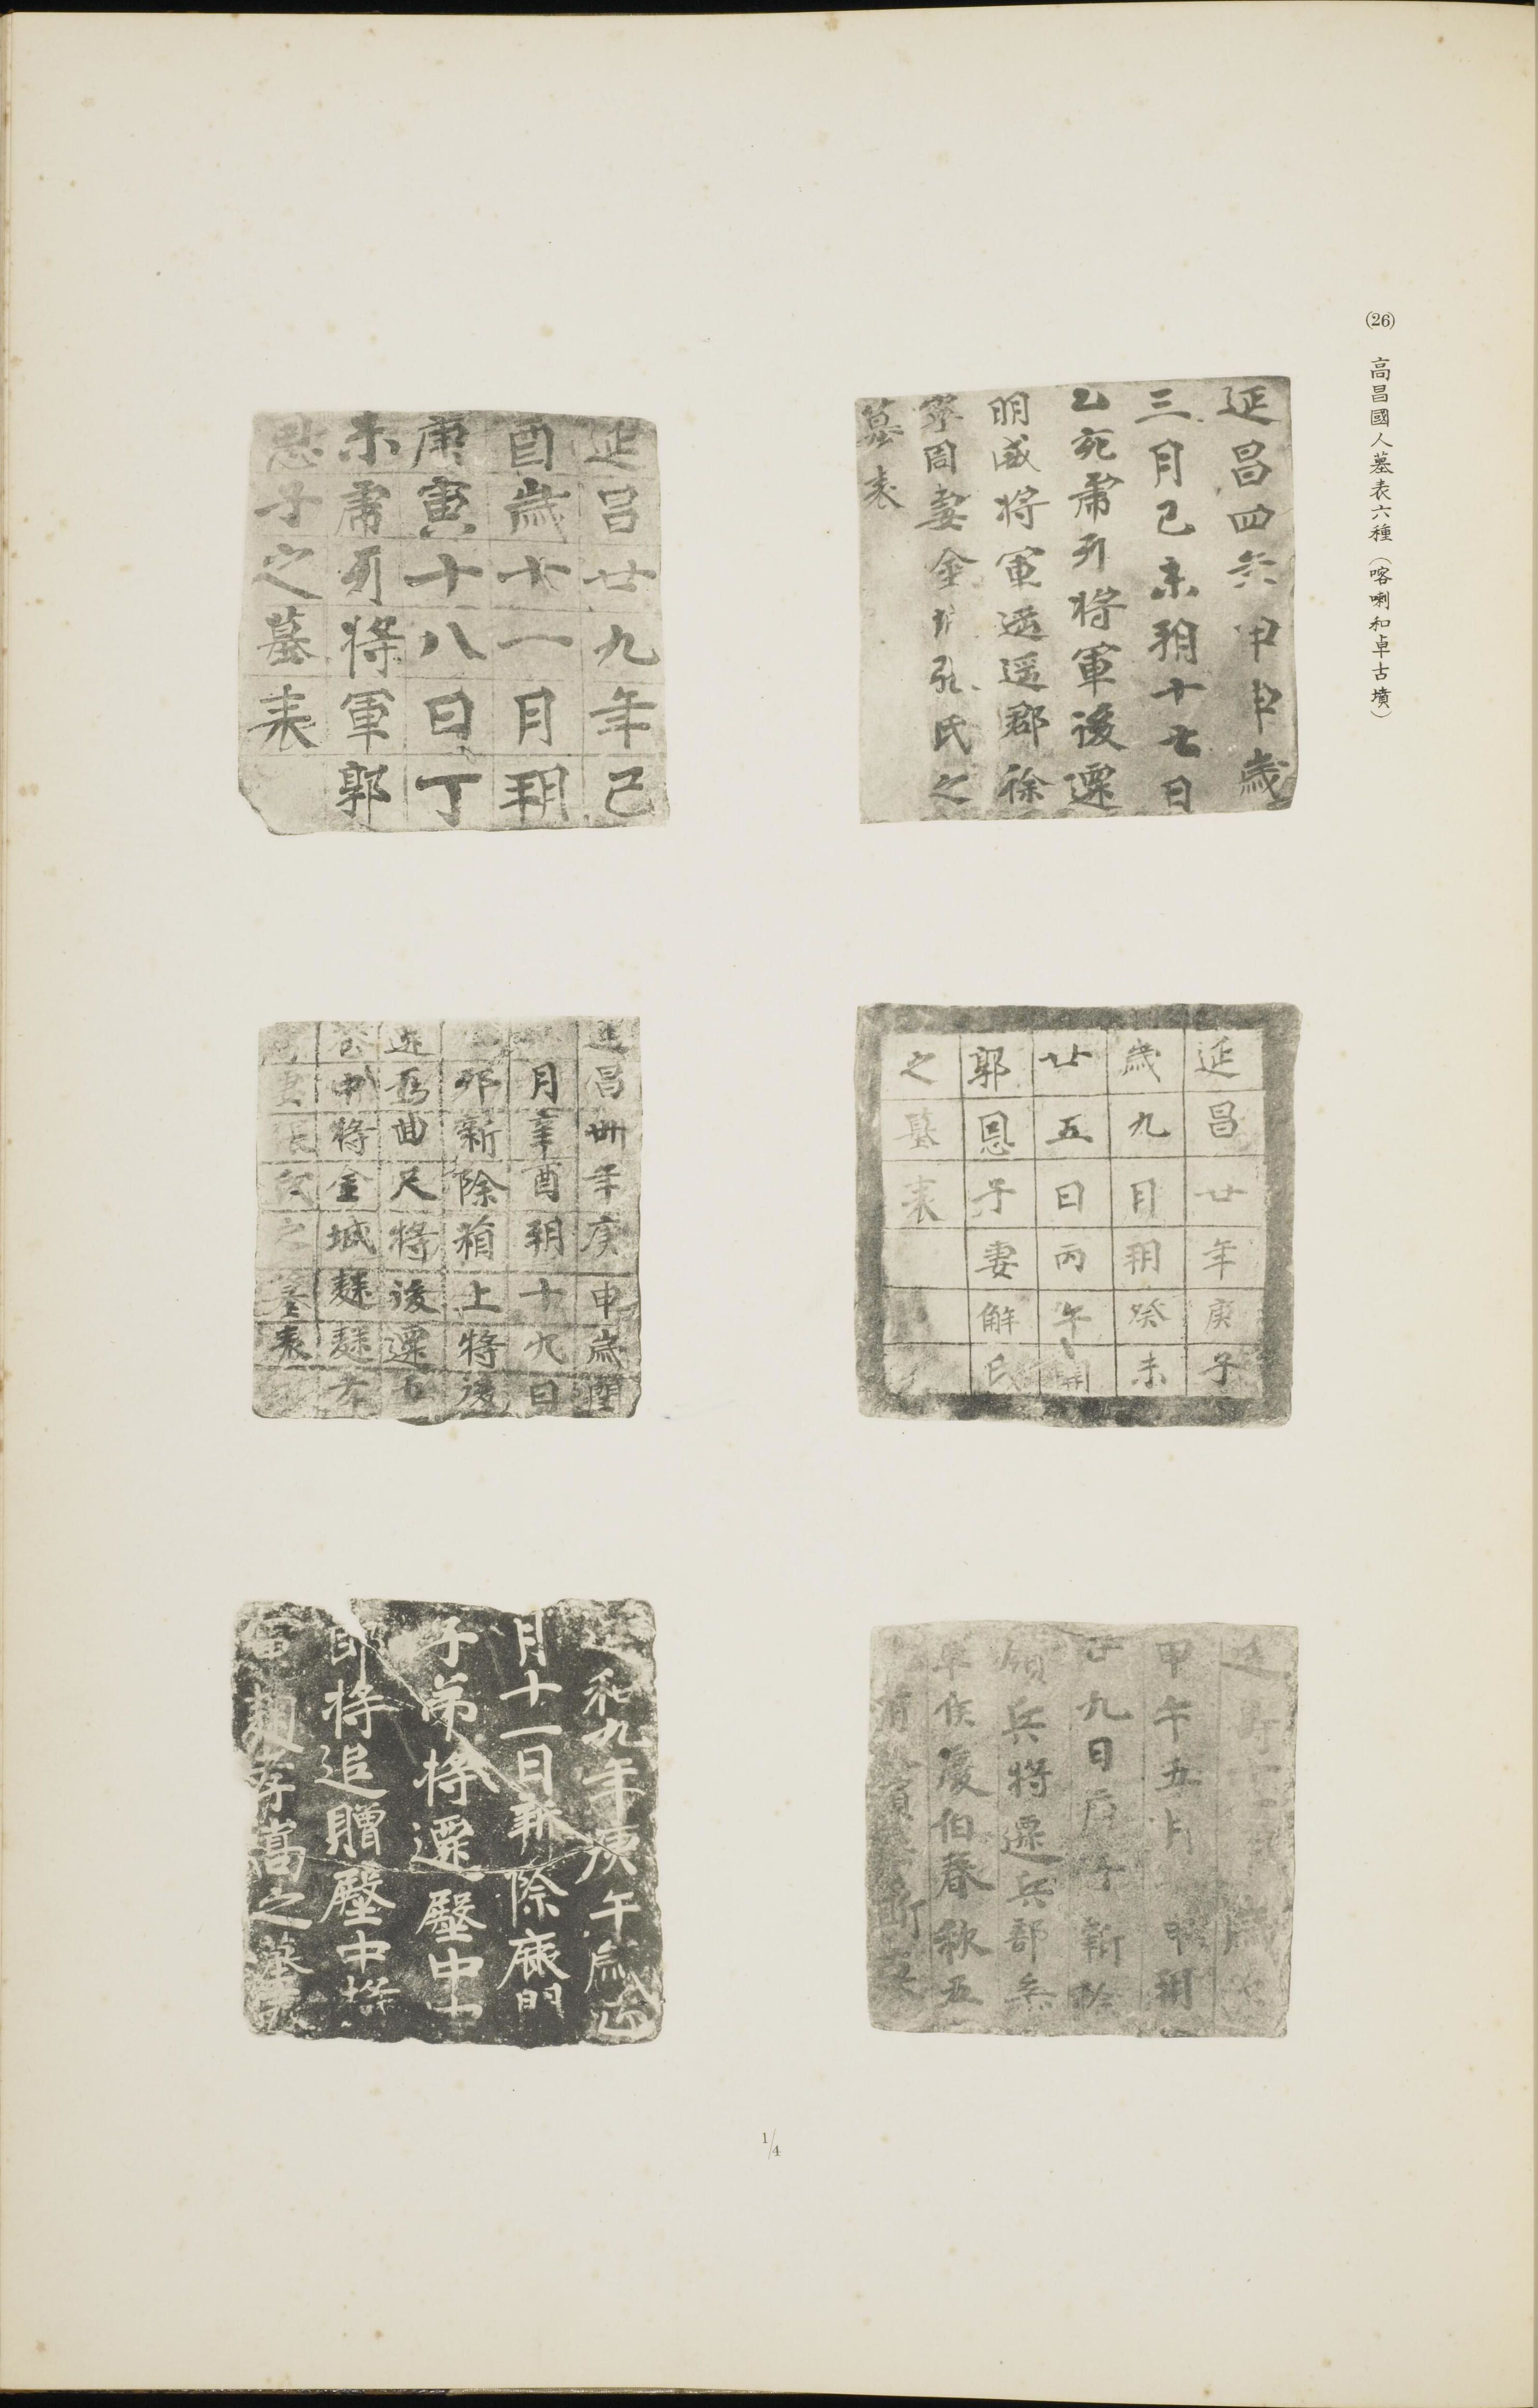 (26) 高昌國人墓表六種（喀喇和卓古墳）
延昌四年甲申歲
三月己未朔十七日
乙亥虎牙將軍後遷
明威將軍遥遥郡徐
寧周妻金城張氏之
墓表
延昌廿九年己
酉歲十一月朔
庚寅十八日丁
未虎牙將軍郭
恩子之墓表
延昌廿年庚子
歲九月朔癸未
廿五日丙午
郭恩子妻解氏
之墓表
昌卌年庚申歲閏
月辛酉朔十九日
卯新除箱上將後
遷爲曲尺將後遷
中將金城麴
妻張氏之墓表
甲午五月 朔
廿九日 新除
領兵將遷兵部參
軍侯慶伯春秋五
有
和九年庚午歲正
月十一日新除麻門
子弟將遷殿中
郎將追贈殿中將
軍 孝嵩之墓表
1/4